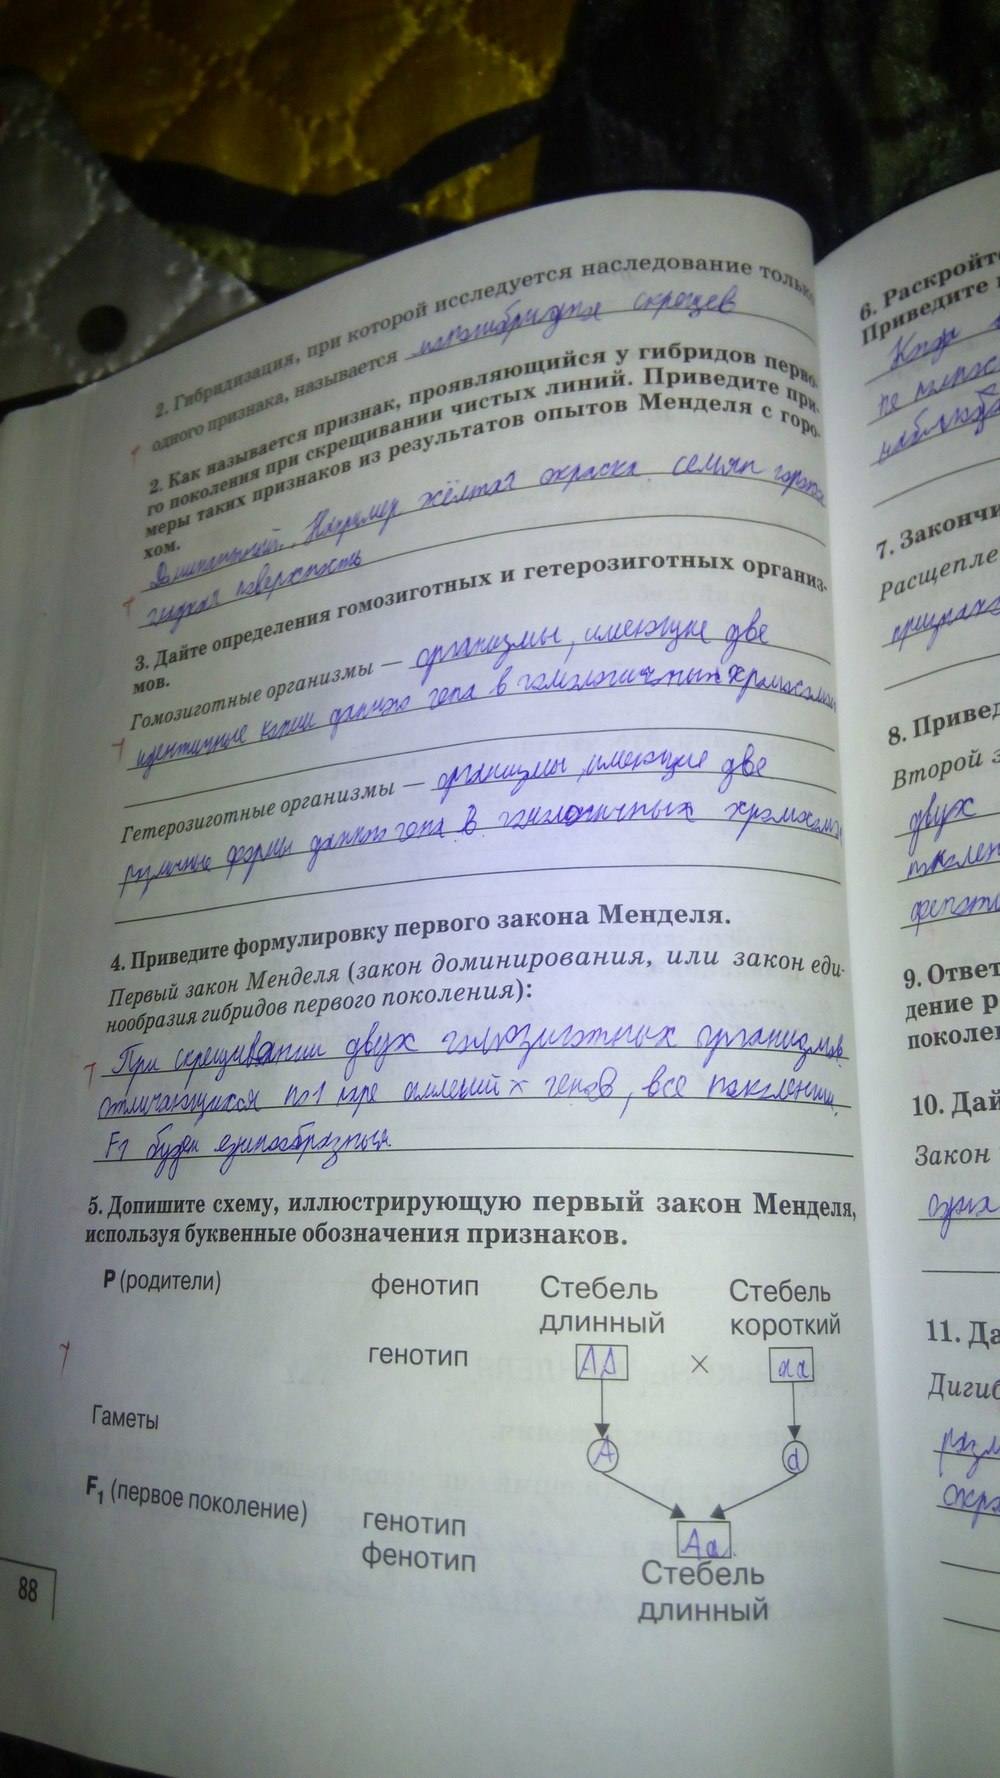 2. Гибридизация, при которой исследуется наследование только
одного признака, называется моногибридное скрещев
2. Как называется признак, проявляющийся у гибридов перво-
го поколения при скрещивании чистых линий. Приведите при-
меры таких признаков из результатов опытов Менделя с горо-
хом.
Доминантный. Например жёлтая окраска семян гороха
гладкая поверхность
3. Дайте определения гомозиготных и гетерозиготных организ-
мов.
Гомозиготные организмы — организмы, имеющие две
идентичные копии данного гена в гомологичных хромосомах
Гетерозиготные организмы — организмы, имеющие две
различные формы данного гена в гомологичных хромосомах
4. Приведите формулировку первого закона Менделя.
Первый закон Менделя (закон доминирования, или закон еди-
нообразия гибридов первого поколения):
При скрещивании двух гомозиготных организмов
отличающихся по 1 паре генов, все поколении
F1 будет единообразным
5. Допишите схему, иллюстрирующую первый закон Менделя,
используя буквенные обозначения признаков.
P (родители) фенотип Стебель длинный Стебель короткий
генотип AA × aa
Гаметы A a
F1 (первое поколение) генотип Aa
фенотип Стебель длинный
88
6. Раскройте
Приведите
Когда
не полнос
наблюда
7. Закончи
Расщепле
признака
8. Привед
Второй з
двух
поколен
фенот
9. Ответ
дение р
поколен
10. Дай
Закон
11. Да
Дигиб
разл